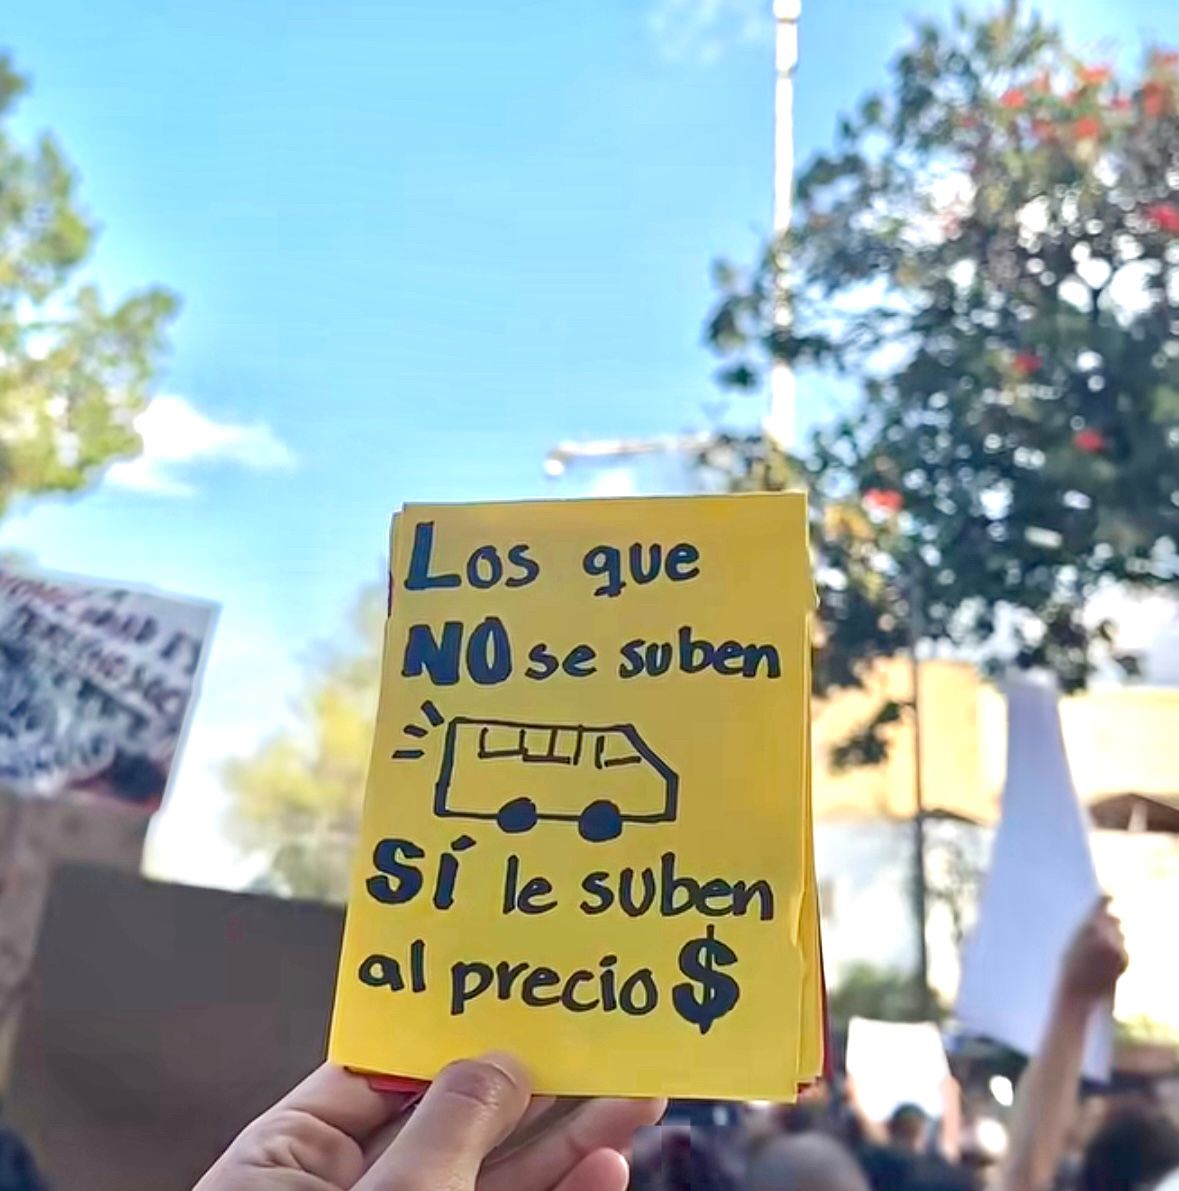 Los que
NO se suben
SÍ le suben
al precio $